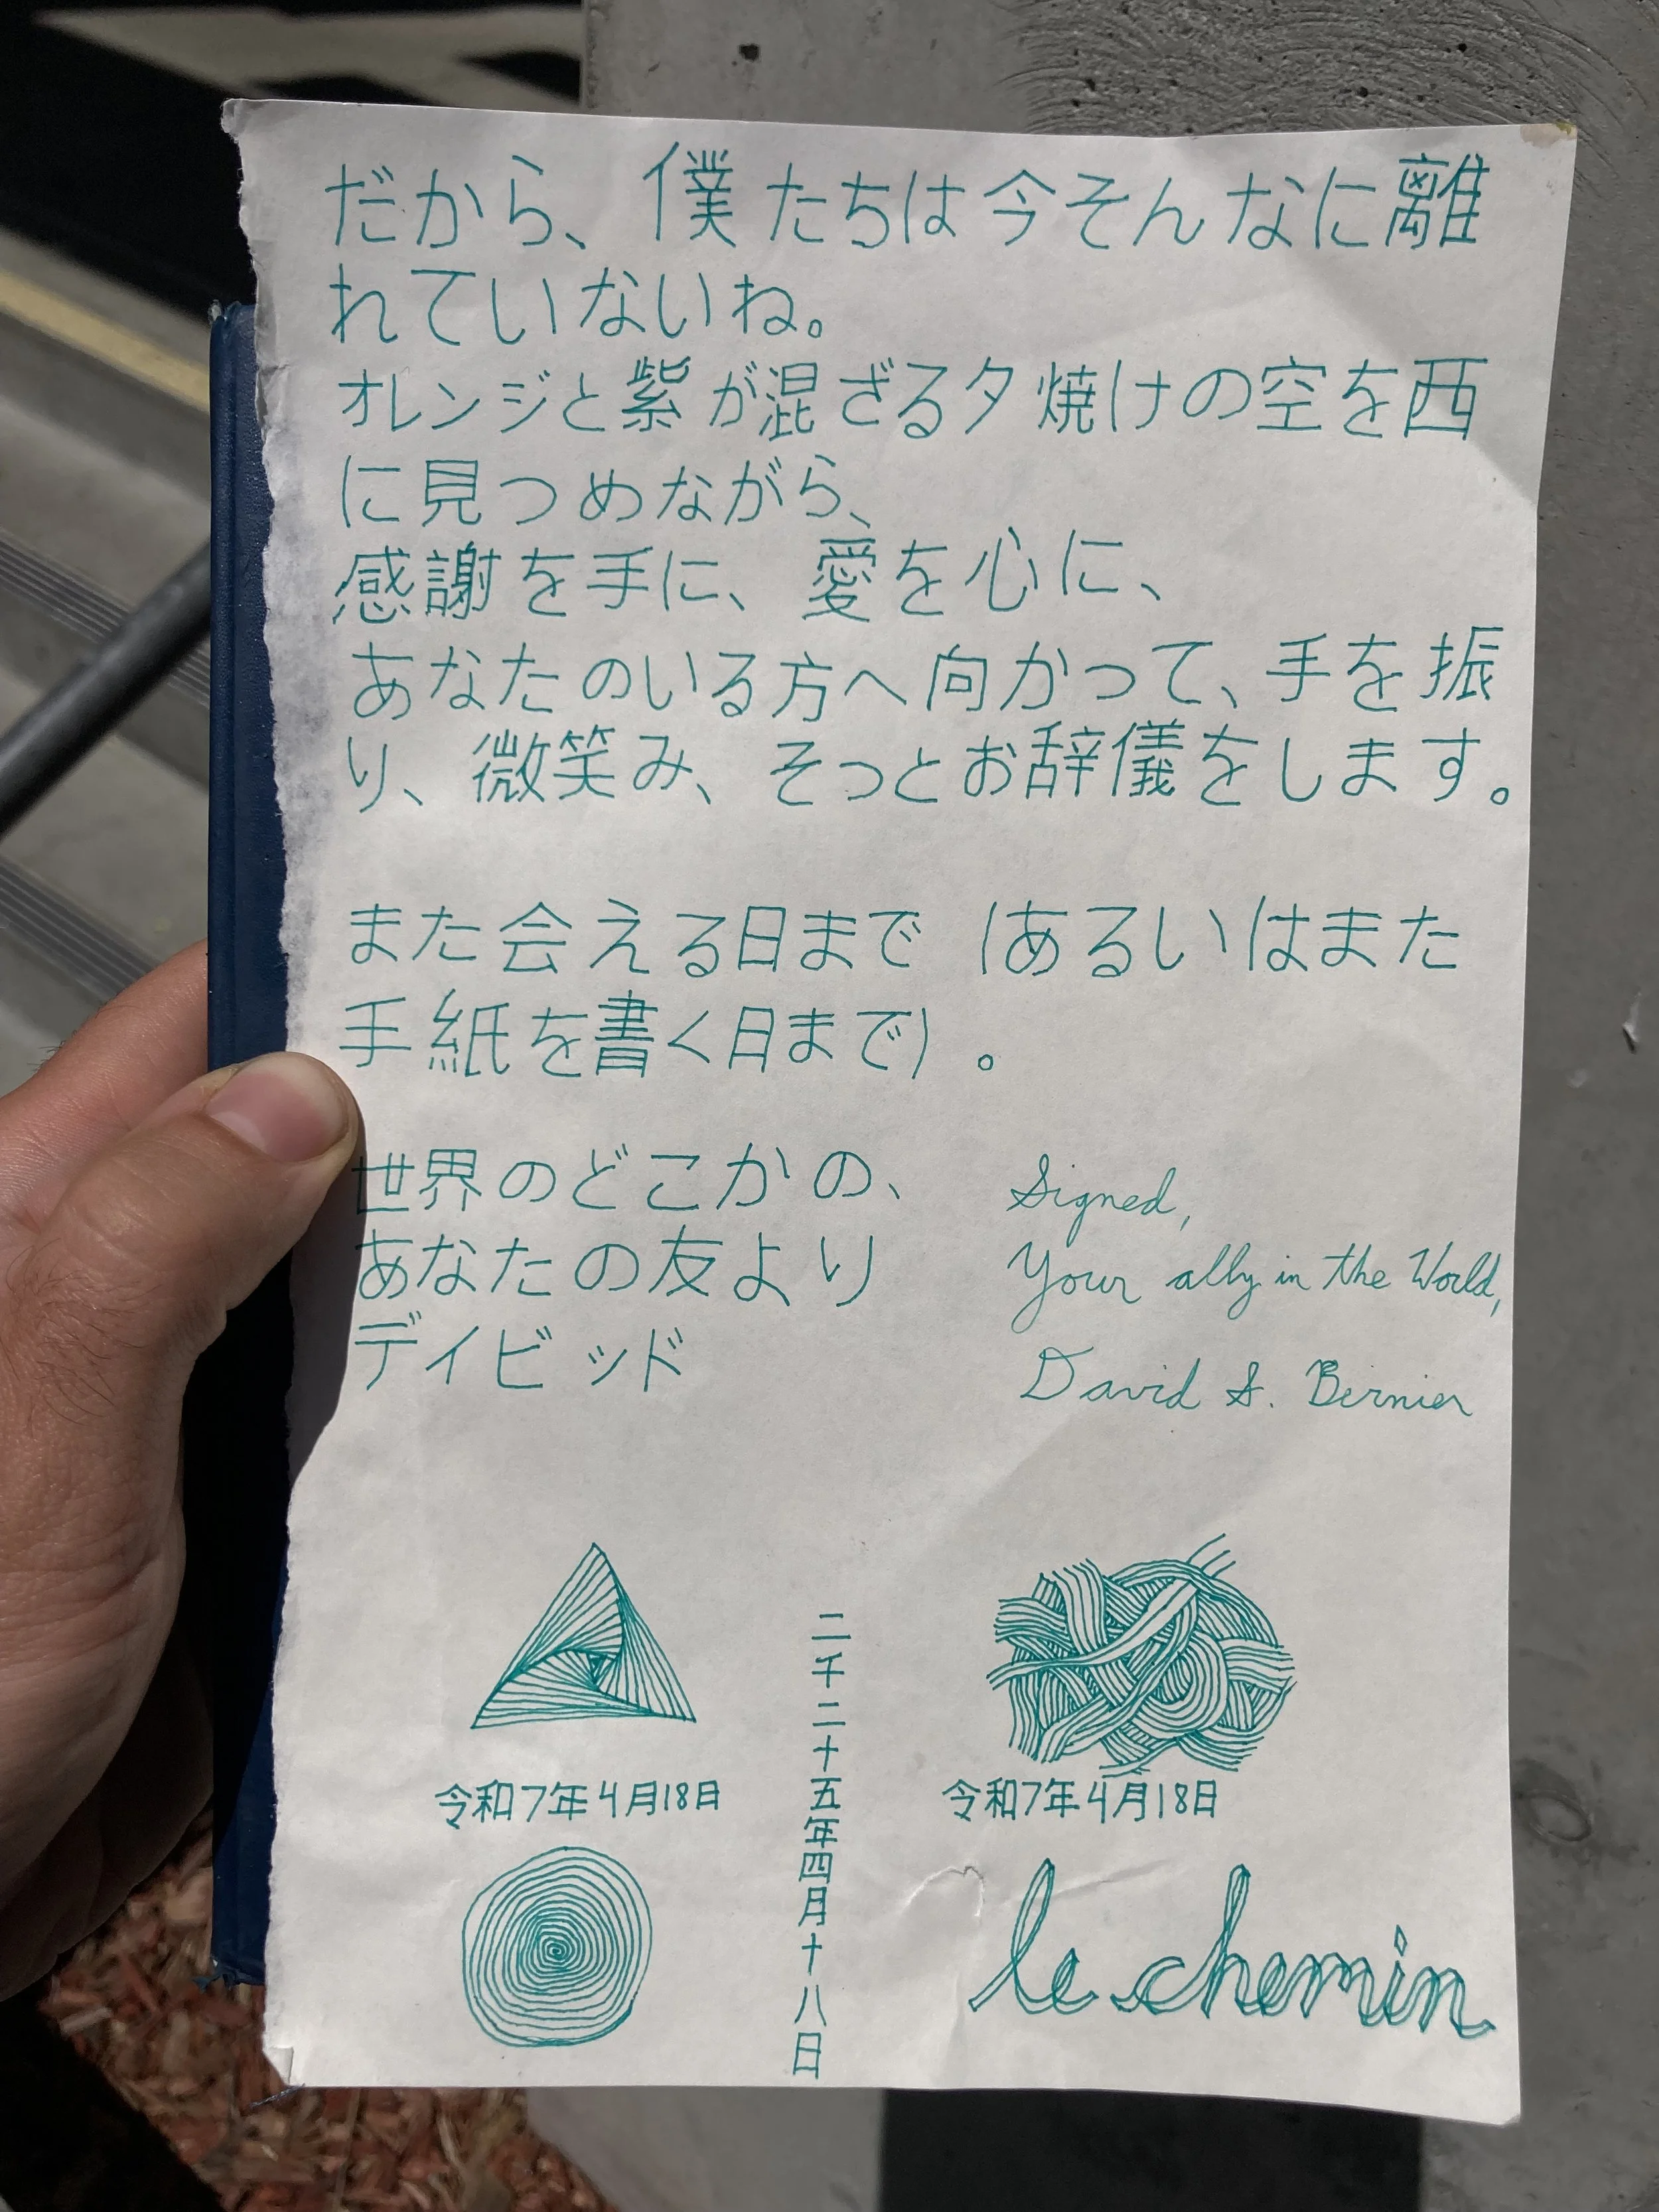 だから、僕たちは今そんなに離
れていないね。
オレンジと紫が混ざる夕焼けの空を西
に見つめながら、
感謝を手に、愛を心に、
あなたのいる方へ向かって、手を振
り、微笑み、そっとお辞儀をします。
また会える日まで（あるいはまた
手紙を書く日まで）。
世界のどこかの、
あなたの友より
デイビッド
Signed,
Your ally in the World,
David S. Bernier
令和7年4月18日
二千二十五年四月十八日
令和7年4月18日
le chemin